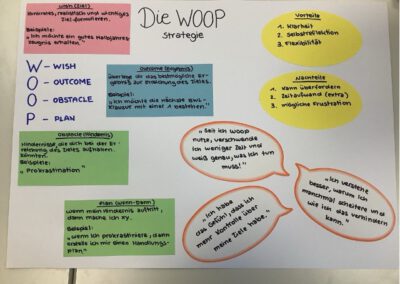 Die WOOP
strategie
Wish (Ziel)
Konkretes, realistisch und wichtiges
Ziel formulieren.
Beispiele:
„Ich möchte ein gutes Halbjahres-
zeugnis erhalten."
W - WISH
O - OUTCOME
O - OBSTACLE
P - PLAN
Outcome (Ergebnis)
Überlege dir das bestmögliche Er-
gebnis zur Erreichung des Zieles.
Beispiele:
„Ich möchte die nächste BWL-
Klausur mit einer 2 bestehen."
Obstacle (Hindernis)
Hindernisse die dich bei der Er-
reichung des Zieles aufhalten
könnten.
Beispiele:
„Prokrastination"
Plan (Wenn-Dann)
Wenn mein Hindernis auftritt,
dann mache ich xy.
Beispiel:
„Wenn ich prokrastiniere, dann
erstelle ich mir einen Handlungs-
plan"
Vorteile
1. Klarheit
2. Selbstreflektion
3. Flexibilität
Nachteile
1. Kann überfordern
2. Zeitaufwand (extra)
3. mögliche Frustration
„Seit ich WOOP
nutze, verschwende
ich weniger Zeit und
weiß genau, was ich tun
muss!"
„Ich verstehe
besser, warum ich
manchmal scheitere und
wie ich das verhindern
kann."
„Ich habe
das Gefühl, dass ich
mehr Kontrolle über
meine Ziele habe."